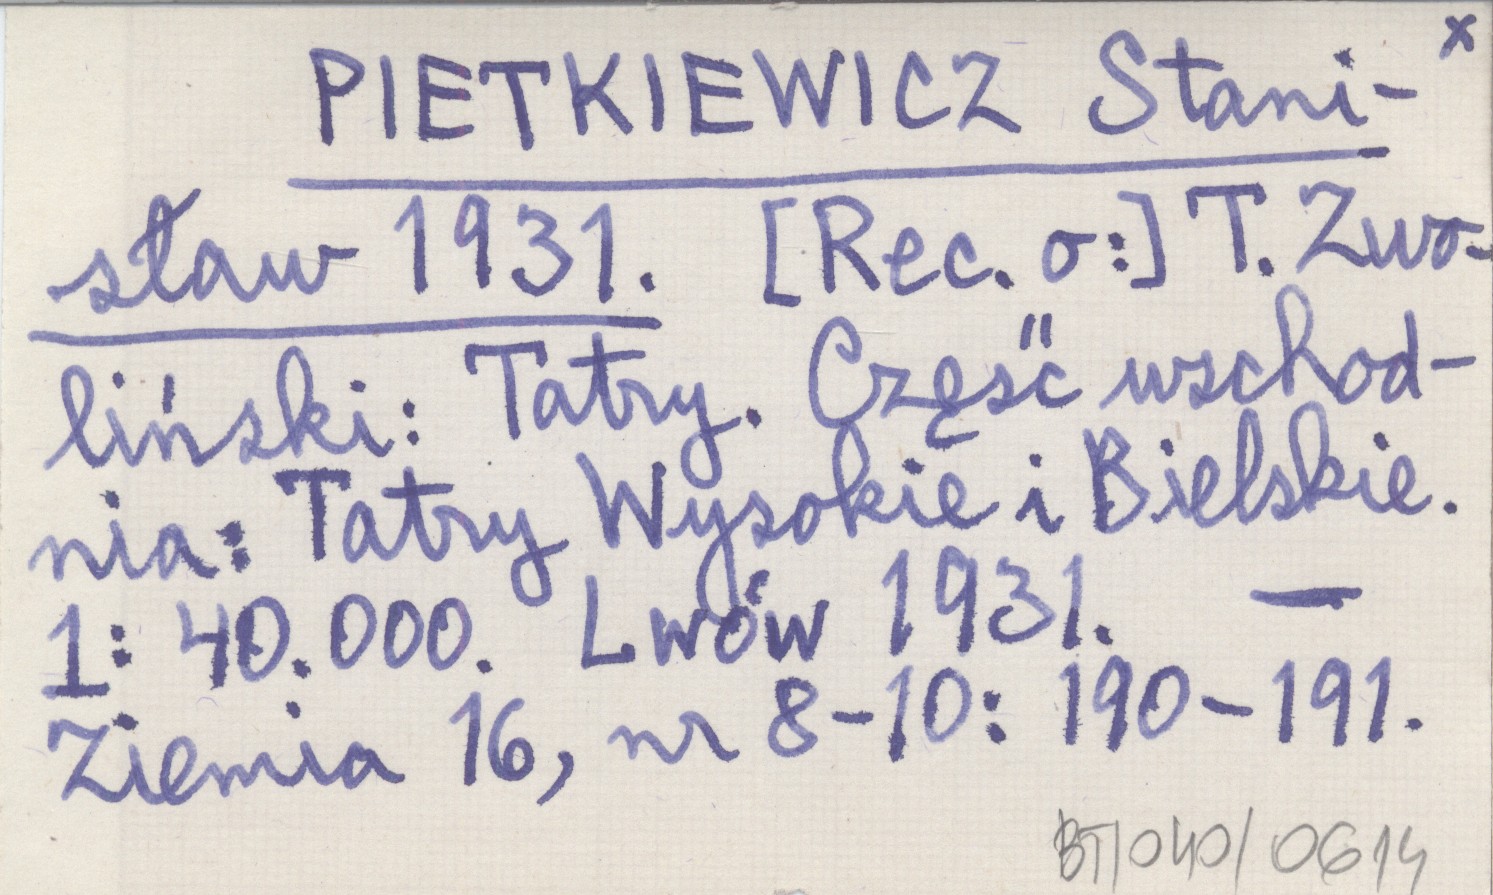 x
PIETKIEWICZ Stani-
sław 1931. [Rec. o:] T. Zwo-
liński: Tatry. Część wschod-
nia: Tatry Wysokie i Bielskie.
1: 40.000. Lwów 1931. —
Ziemia 16, nr 8-10: 190-191.
BT/040/0614